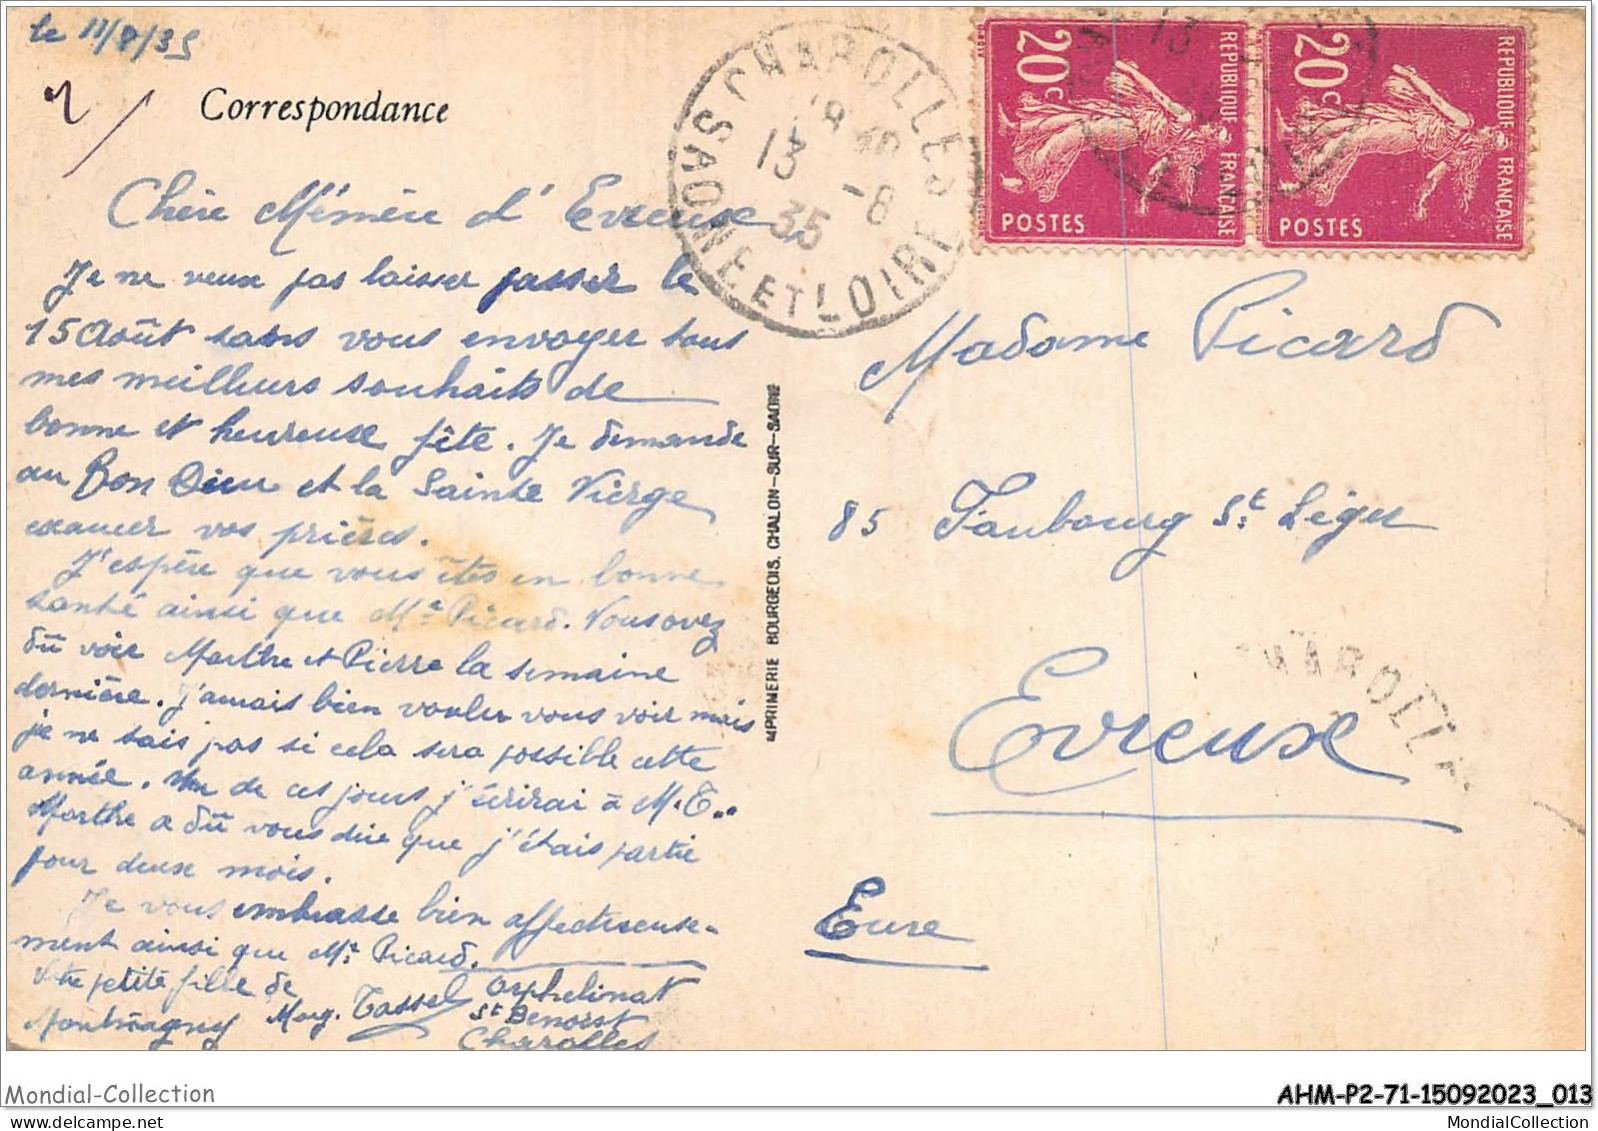 le 11/8/35
Correspondance
Chère Mémère d'Evreux,
Je ne veux pas laisser passer le
15 Août sans vous envoyer tous
mes meilleurs souhaits de
bonne et heureuse fête. Je demande
au Bon Dieu et la Sainte Vierge
exaucer vos prières.
J'espère que vous êtes en bonne
santé ainsi que Mr Picard. Vous avez
dû voir Marthe et Pierre la semaine
dernière. J'amais bien vouler vous voir mais
je ne sais pas si cela sera possible cette
année. Un de ces jours j'écrirai à M.E..
Marthe a dû vous dire que j'étais partie
pour deux mois.
Je vous embrasse bien affectueuse-
ment ainsi que Mr Picard.
Vtre petite fille de
Montmagny Marg. Tassel
Orphelinat
St Benoist
Charolles
IMPRIMERIE BOURGEOIS, CHALON-SUR-SAONE
CHAROLLES
13 -8
35
SAONE ET LOIRE
20c
REPUBLIQUE FRANÇAISE
POSTES
20c
REPUBLIQUE FRANÇAISE
POSTES
13
Madame Picard
85 Faubourg St Léger
Evreux
CHAROLLES
Eure
Mondial-Collection
AHM-P2-71-15092023_013
MondialCollection
MondialCollection